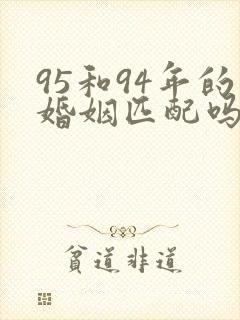 95和94年的
婚姻匹配吗
贫道非道